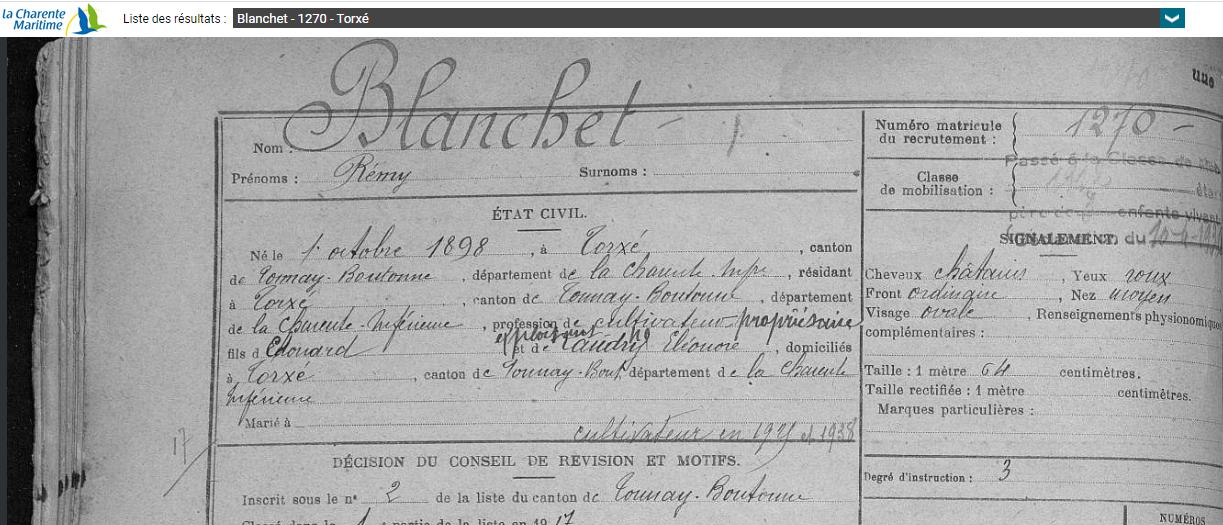 la Charente
Maritime
Liste des résultats : Blanchet - 1270 - Torxé
une
Nom : Blanchet
Prénoms : Rémy Surnoms :
Numéro matricule
du recrutement : 1270
Classe
de mobilisation :
Passé à la Classe de
père de enfants vivant
ÉTAT CIVIL.
Né le 1er octobre 1898, à Torxé, canton
de Tonnay-Boutonne, département de la Charente Infre, résidant
à Torxé, canton de Tonnay-Boutonne, département
de la Charente-Inférieure, profession de cultivateur propriétaire
exploitant
fils d Edouard et de Eléonore, domiciliés
à Torxé, canton de Tonnay-Bout. département de la Charente
Inférieure
Marié à
cultivateur en 1938
SIGNALEMENT.
Cheveux châtains, Yeux roux
Front ordinaire, Nez moyen
Visage ovale, Renseignements physionomiques
complémentaires :
Taille : 1 mètre 64 centimètres.
Taille rectifiée : 1 mètre centimètres.
Marques particulières :
Degré d'instruction : 3
17
DÉCISION DU CONSEIL DE RÉVISION ET MOTIFS.
Inscrit sous le n° 2 de la liste du canton de Tonnay-Boutonne
Classé dans la 1 partie de la liste en 1917
NUMÉROS